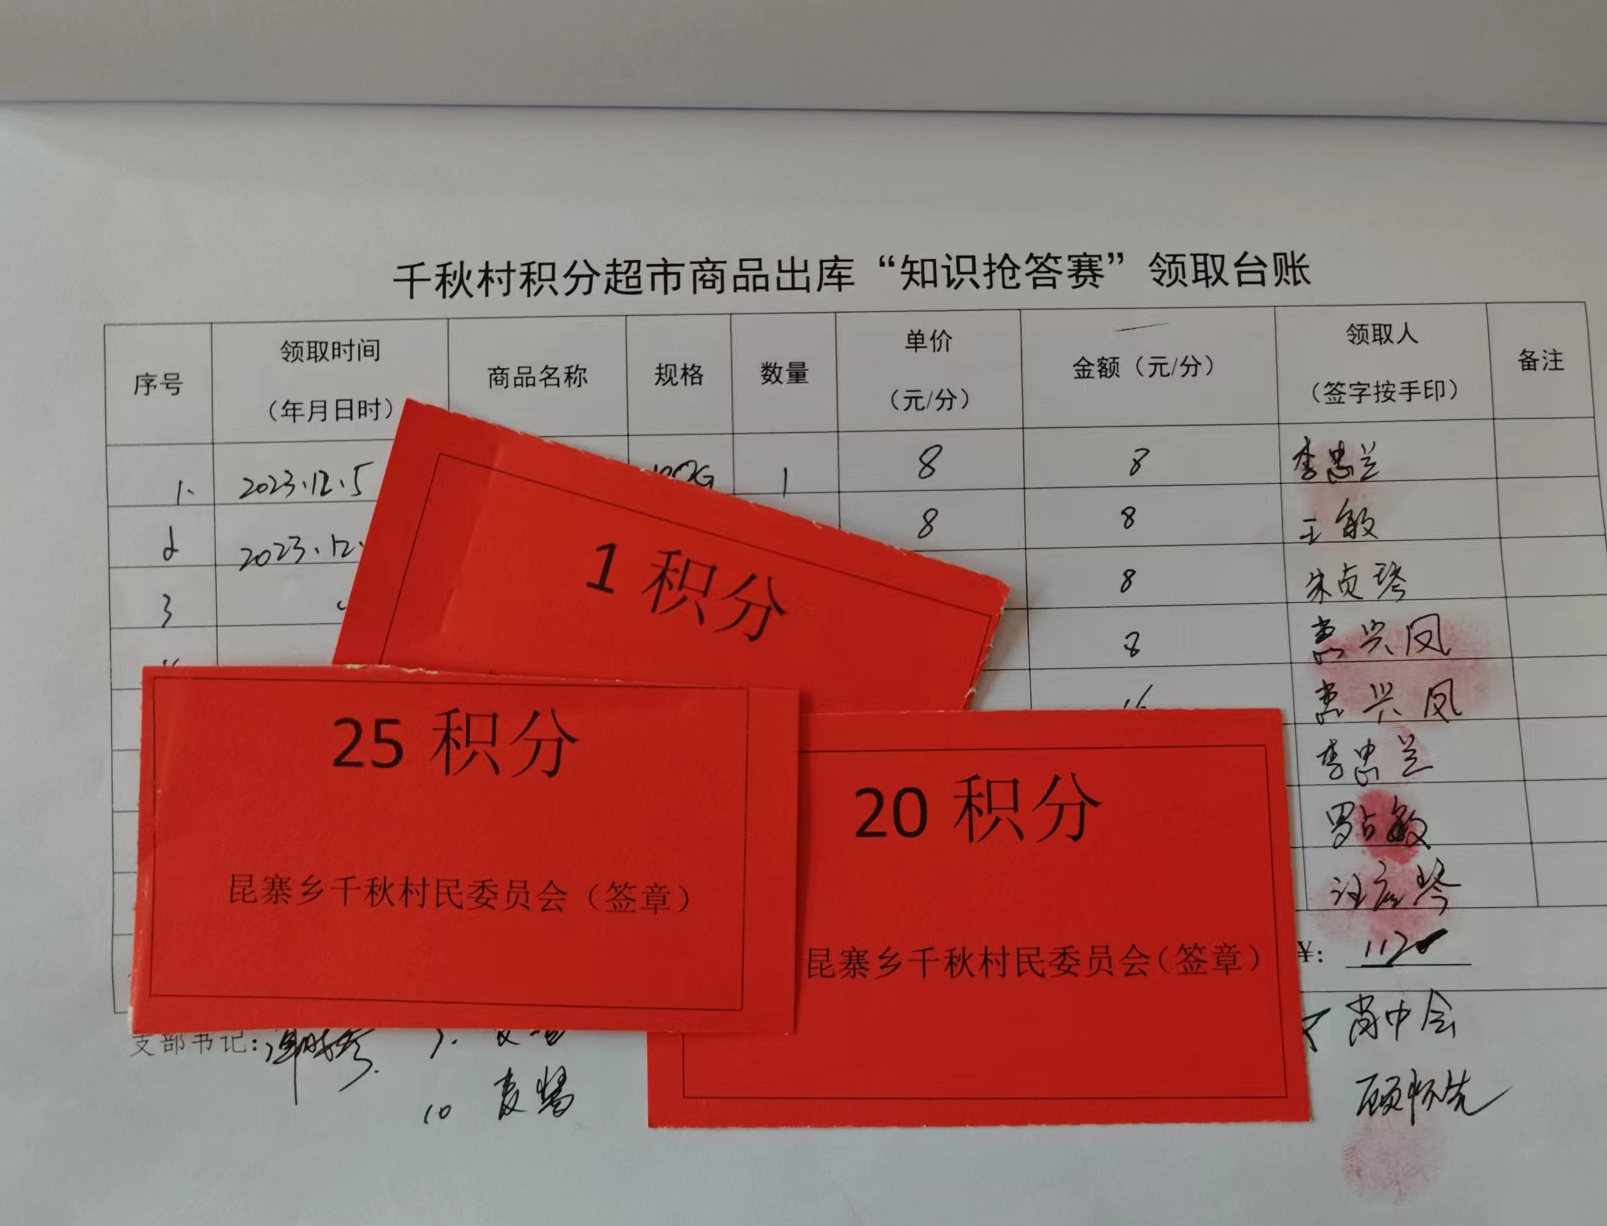 千秋村积分超市商品出库“知识抢答赛”领取台账
序号 领取时间（年月日时） 商品名称 规格 数量 单价（元/分） 金额（元/分） 领取人（签字按手印） 备注
1. 2023.12.5 1 8 8 李忠兰
2 2023.12. 8 8 王敏
3 8 朱贞琴
8 惠兴凤
16 惠兴凤
李忠兰
罗占敏
琴
¥:
1 积分
25 积分
昆寨乡千秋村民委员会（签章）
20 积分
昆寨乡千秋村民委员会（签章）
支部书记:
肖中会
10